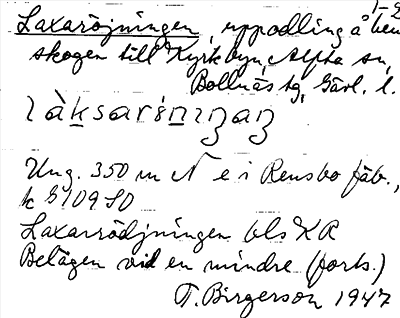 1-2
Laxaröjningen, uppodling å hem
skogen till Kyrkbyn, Alfta sn,
Bollnäs tg, Gävl. l.
Ung. 350 m N e i Rensbo fäb.,
k G109 SO
Laxarrödjningen bls KR
Belägen vid en mindre (forts.)
T. Birgerson 1947